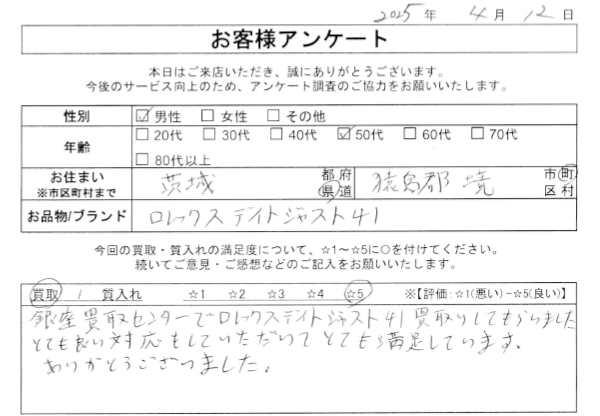 2025年 4月 12日
お客様アンケート
本日はご来店いただき、誠にありがとうございます。
今後のサービス向上のため、アンケート調査のご協力をお願いいたします。
性別 ☑男性 □女性 □その他
年齢 □20代 □30代 □40代 ☑50代 □60代 □70代
□80代以上
お住まい ※市区町村まで 茨城 都府県道 猿島郡 境 市町区村
お品物/ブランド ロレックス デイトジャスト41
今回の買取・質入れの満足度について、☆1～☆5に○を付けてください。
続いてご意見・ご感想などのご記入をお願いいたします。
買取 / 質入れ ☆1 ☆2 ☆3 ☆4 ☆5 ※【評価:☆1(悪い)-☆5(良い)】
銀座買取センターでロレックスデイトジャスト41買取りしてもらいました
とても良い対応をしていただいてとても満足しています。
ありがとうございました。